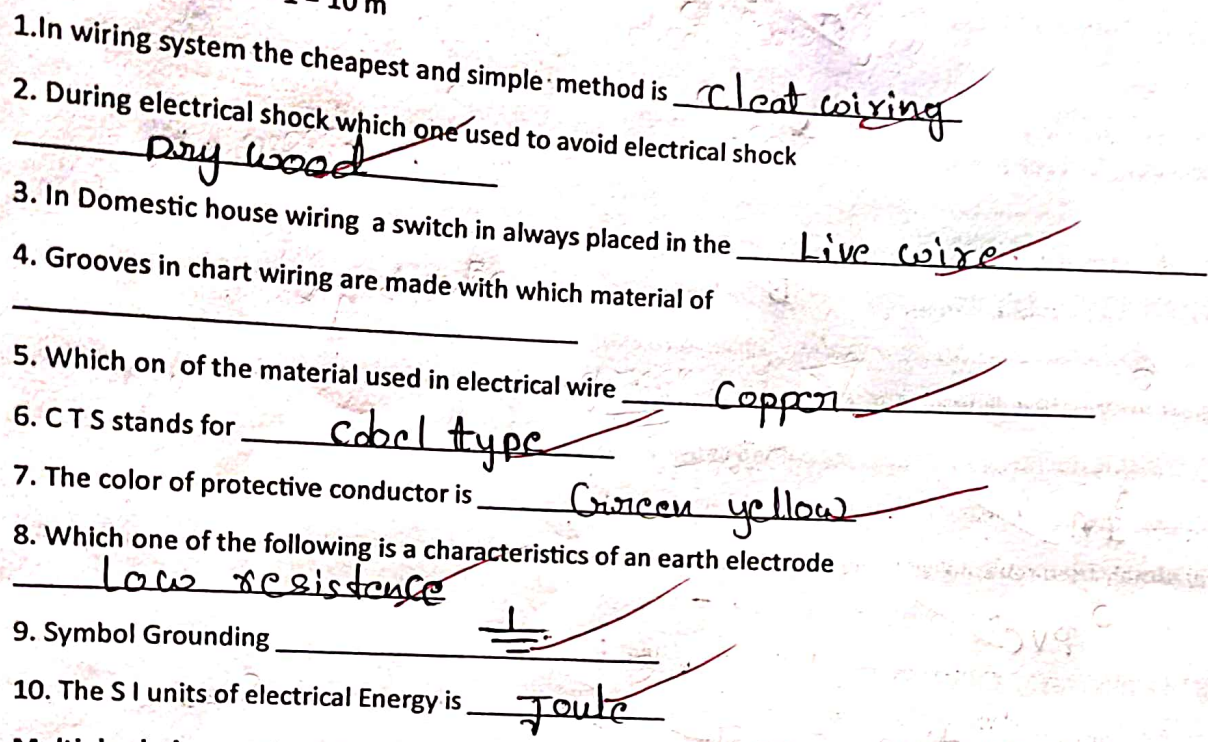 10 m
1.In wiring system the cheapest and simple method is Cleat wiring
2. During electrical shock which one used to avoid electrical shock
Dry wood
3. In Domestic house wiring a switch in always placed in the Live wire
4. Grooves in chart wiring are made with which material of
5. Which on of the material used in electrical wire Copper
6. C T S stands for Cabel type
7. The color of protective conductor is Green yellow
8. Which one of the following is a characteristics of an earth electrode
low resistence
9. Symbol Grounding
10. The S I units of electrical Energy is Joule